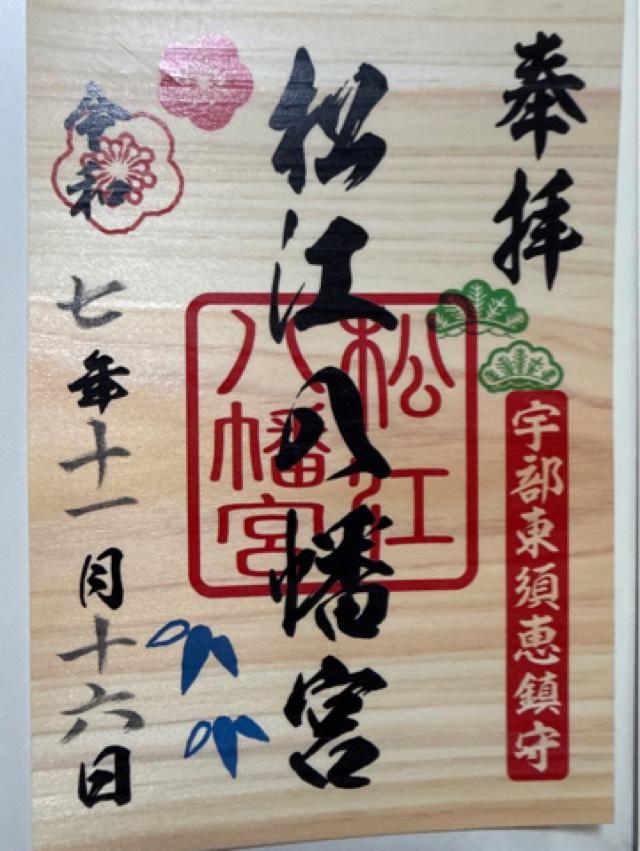 奉拝
宇部東須恵鎮守
松江八幡宮
松江
八幡宮
令和七年十一月十六日